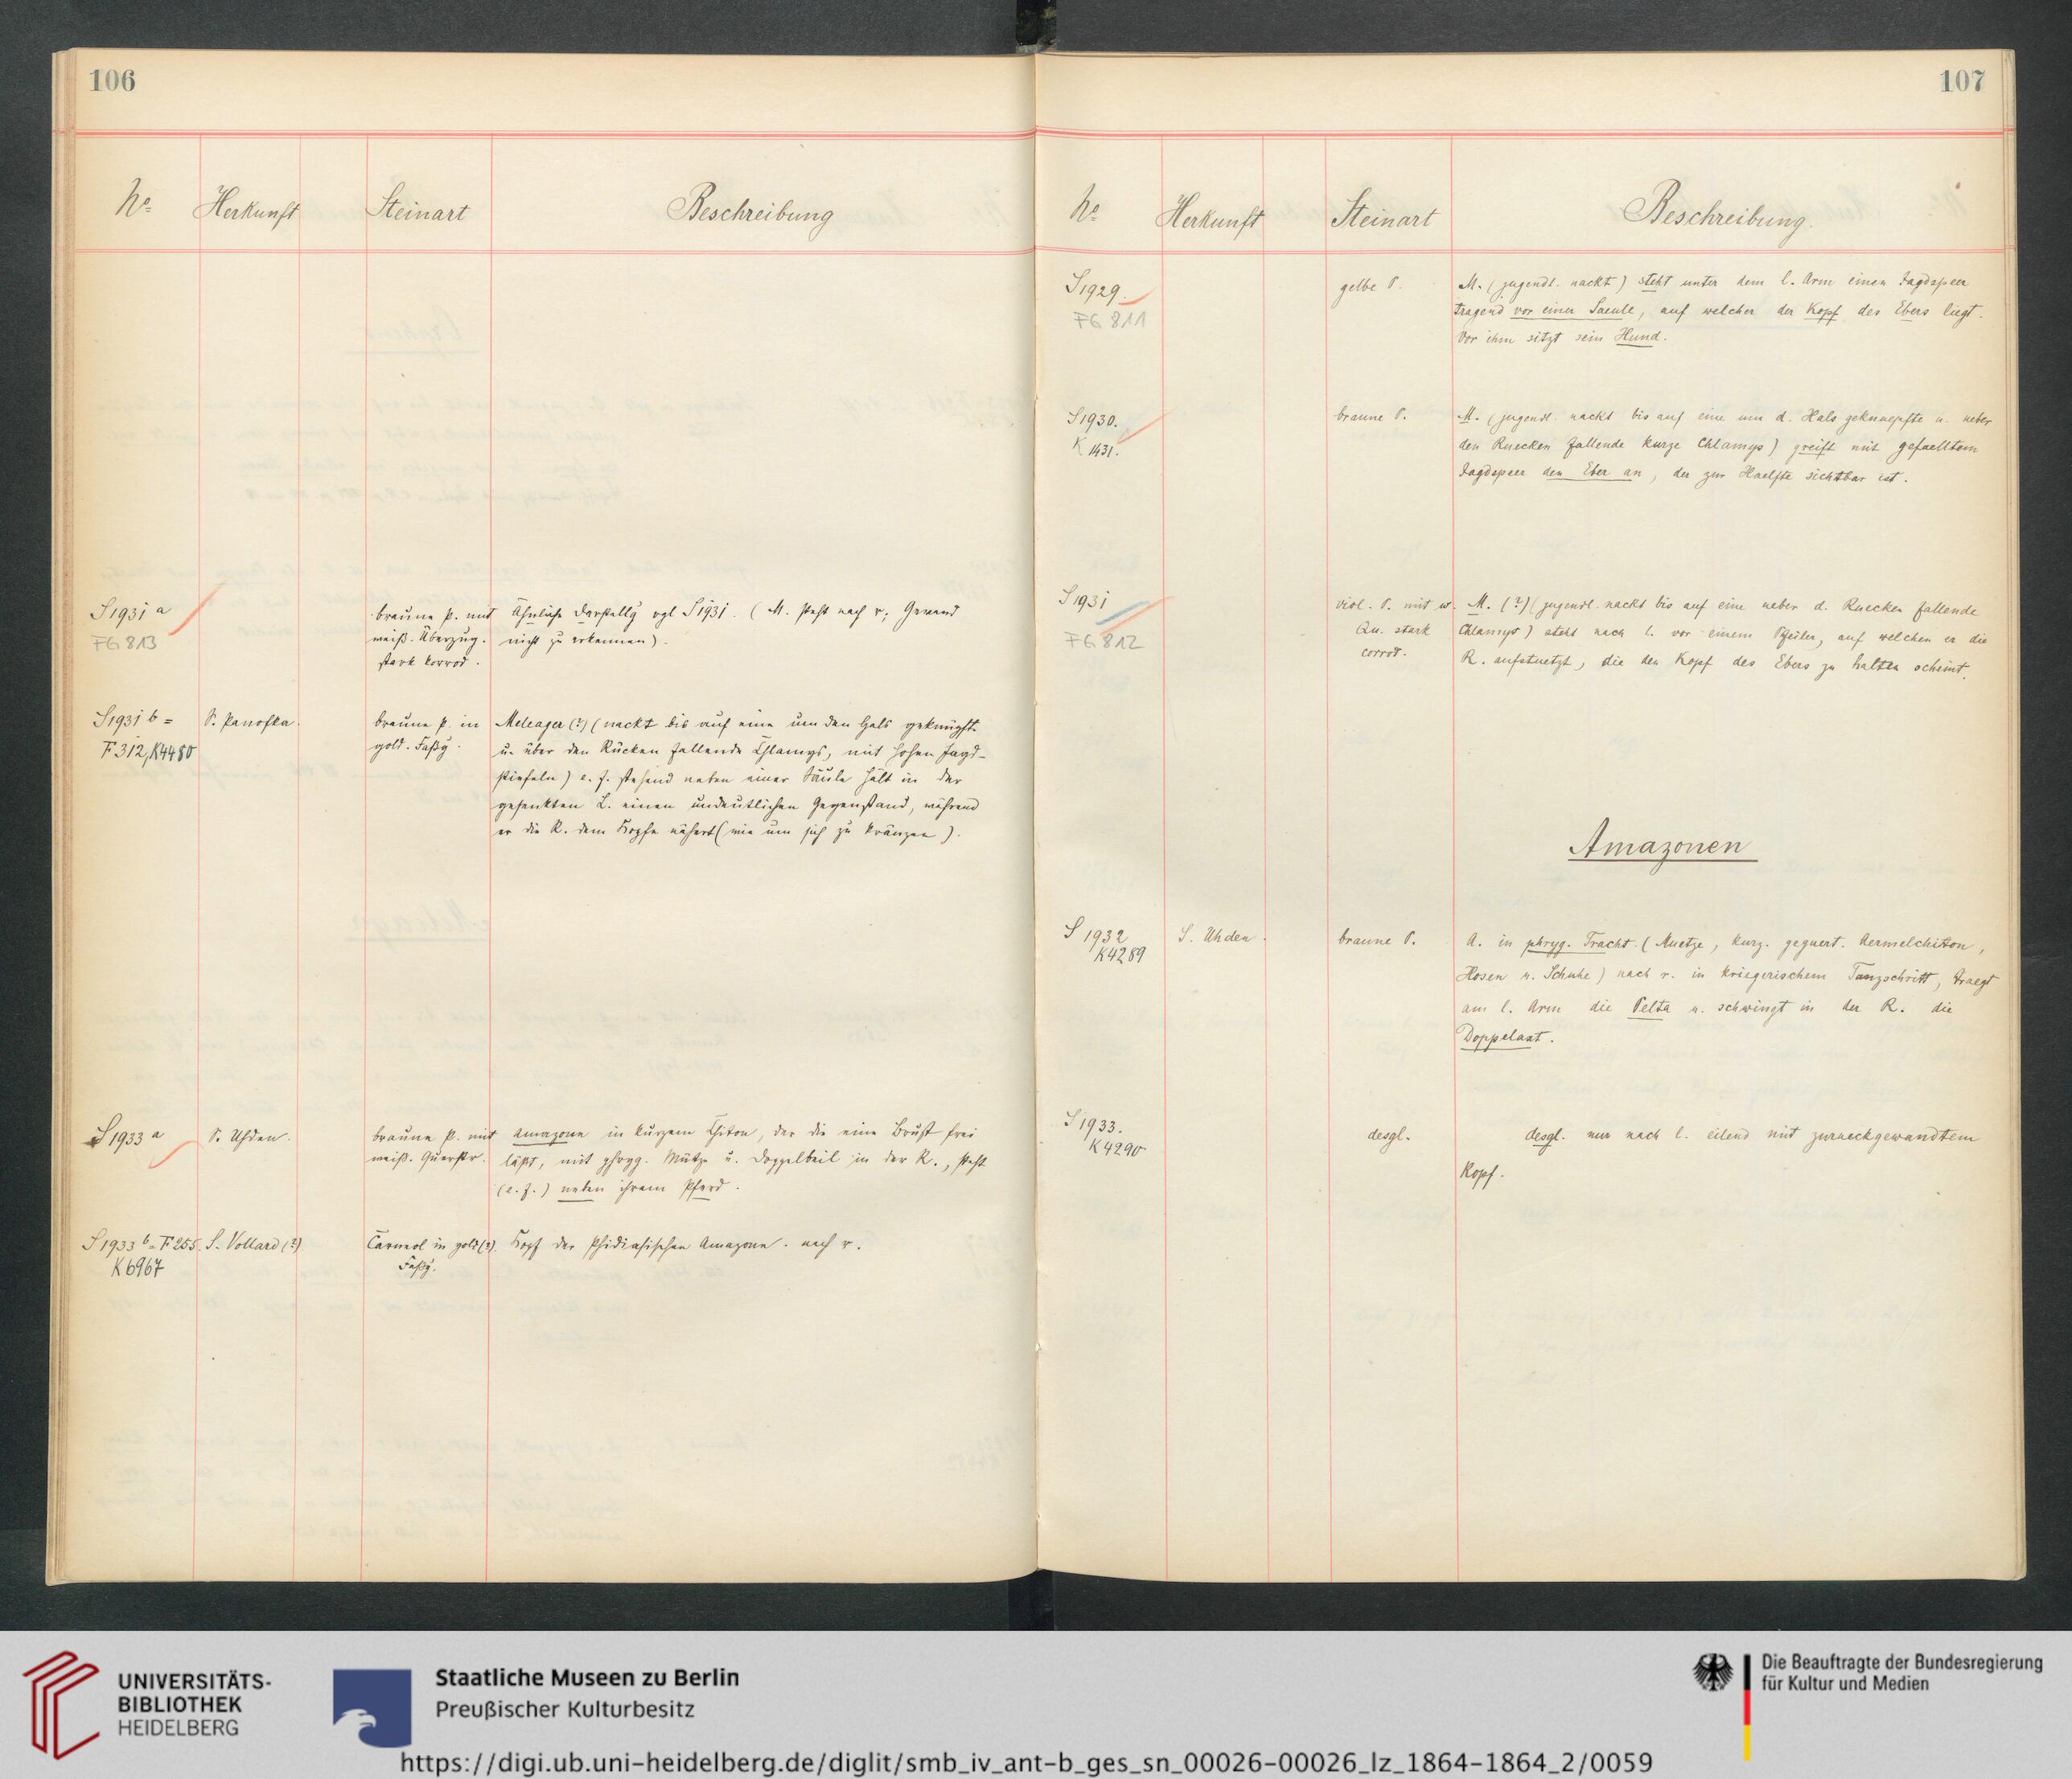 106
No Herkunft Steinart Beschreibung
S 1931 a braune P. mit Ähnliche Darstellg vgl S 1931. (M. steht nach r; Gewand
FG 813 weiß. Überzug. nicht zu erkennen).
stark korrod.
S 1931 b = S. Panofka. braune P. in Meleager (?) (nackt bis auf eine um den Hals geknüpfte
F 312, K 4480 gold. Faßg. u. über den Rücken fallende Chlamys, mit hohen Jagd-
stiefeln) e. f. stehend neben einer Säule hält in der
gesenkten L. einen undeutlichen Gegenstand, während
er die R. dem Kopfe nähert (wie um sich zu kränzen).
S 1933 a S. Uhden. braune P. mit Amazone in kurzem Chiton, der die eine Brust frei
weiß. Querstr. läßt, mit phryg. Mütze u. Doppelbeil in der R., steht
(e. f.) neben ihrem Pferd.
S 1933 b = F 255. S. Vollard (?) Carneol in gold (?). Kopf der Phidiasischen Amazone. nach r.
K 6967 Faßg.
107
No Herkunft Steinart Beschreibung.
S 1929. gelbe P. M. (jugendl. nackt) steht unter dem l. Arm einen Jagdspeer
FG 811 tragend vor einer Saeule, auf welcher der Kopf des Ebers liegt.
Vor ihm sitzt sein Hund.
S 1930. braune P. M. (jugendl. nackt bis auf eine um d. Hals geknuepfte u. ueber
K 1431. den Ruecken fallende kurze Chlamys) greift mit gefaelltem
Jagdspeer den Eber an, der zur Haelfte sichtbar ist.
S 1931 viol. P. mit w. M. (?) (jugendl. nackt bis auf eine ueber d. Ruecken fallende
FG 812 Qu. stark Chlamys) steht nach l. vor einem Pfeiler, auf welchen er die
corrod. R. aufstuetzt, die den Kopf des Ebers zu halten scheint.
Amazonen
S 1932 S. Uhden. braune P. A. in phryg. Tracht (Muetze, kurz. geguert. Aermelchiton,
K 4289 Hosen u. Schuhe) nach r. in kriegerischem Tanzschritt, traegt
am l. Arm die Pelta u. schwingt in der R. die
Doppelaxt.
S 1933. desgl. desgl. nur nach l. eilend mit zurueckgewandtem
K 4290 Kopf.
UNIVERSITÄTS-
BIBLIOTHEK
HEIDELBERG
Staatliche Museen zu Berlin
Preußischer Kulturbesitz
Die Beauftragte der Bundesregierung
für Kultur und Medien
https://digi.ub.uni-heidelberg.de/diglit/smb_iv_ant-b_ges_sn_00026-00026_lz_1864-1864_2/0059